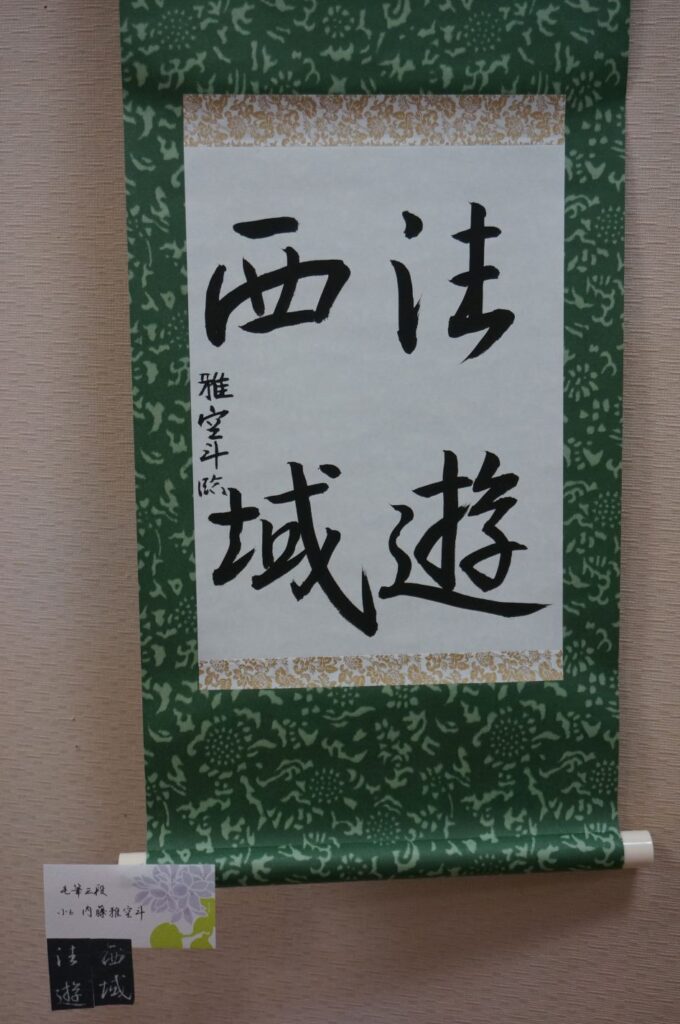 法遊
西域
雅空斗臨
毛筆三段
小6 内藤雅空斗
法遊
西域